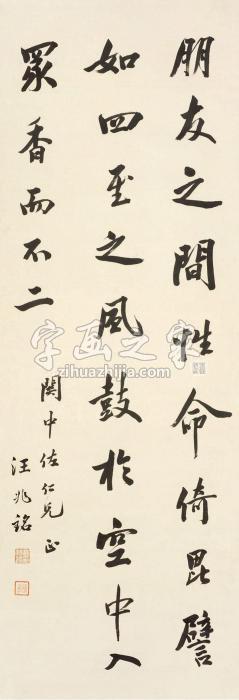 朋友之間性命倚毘譬
如四至之風鼓於空中入
眾香而不二
関中佐仁兄正
汪兆銘
字画之家
zihuazhijia.com